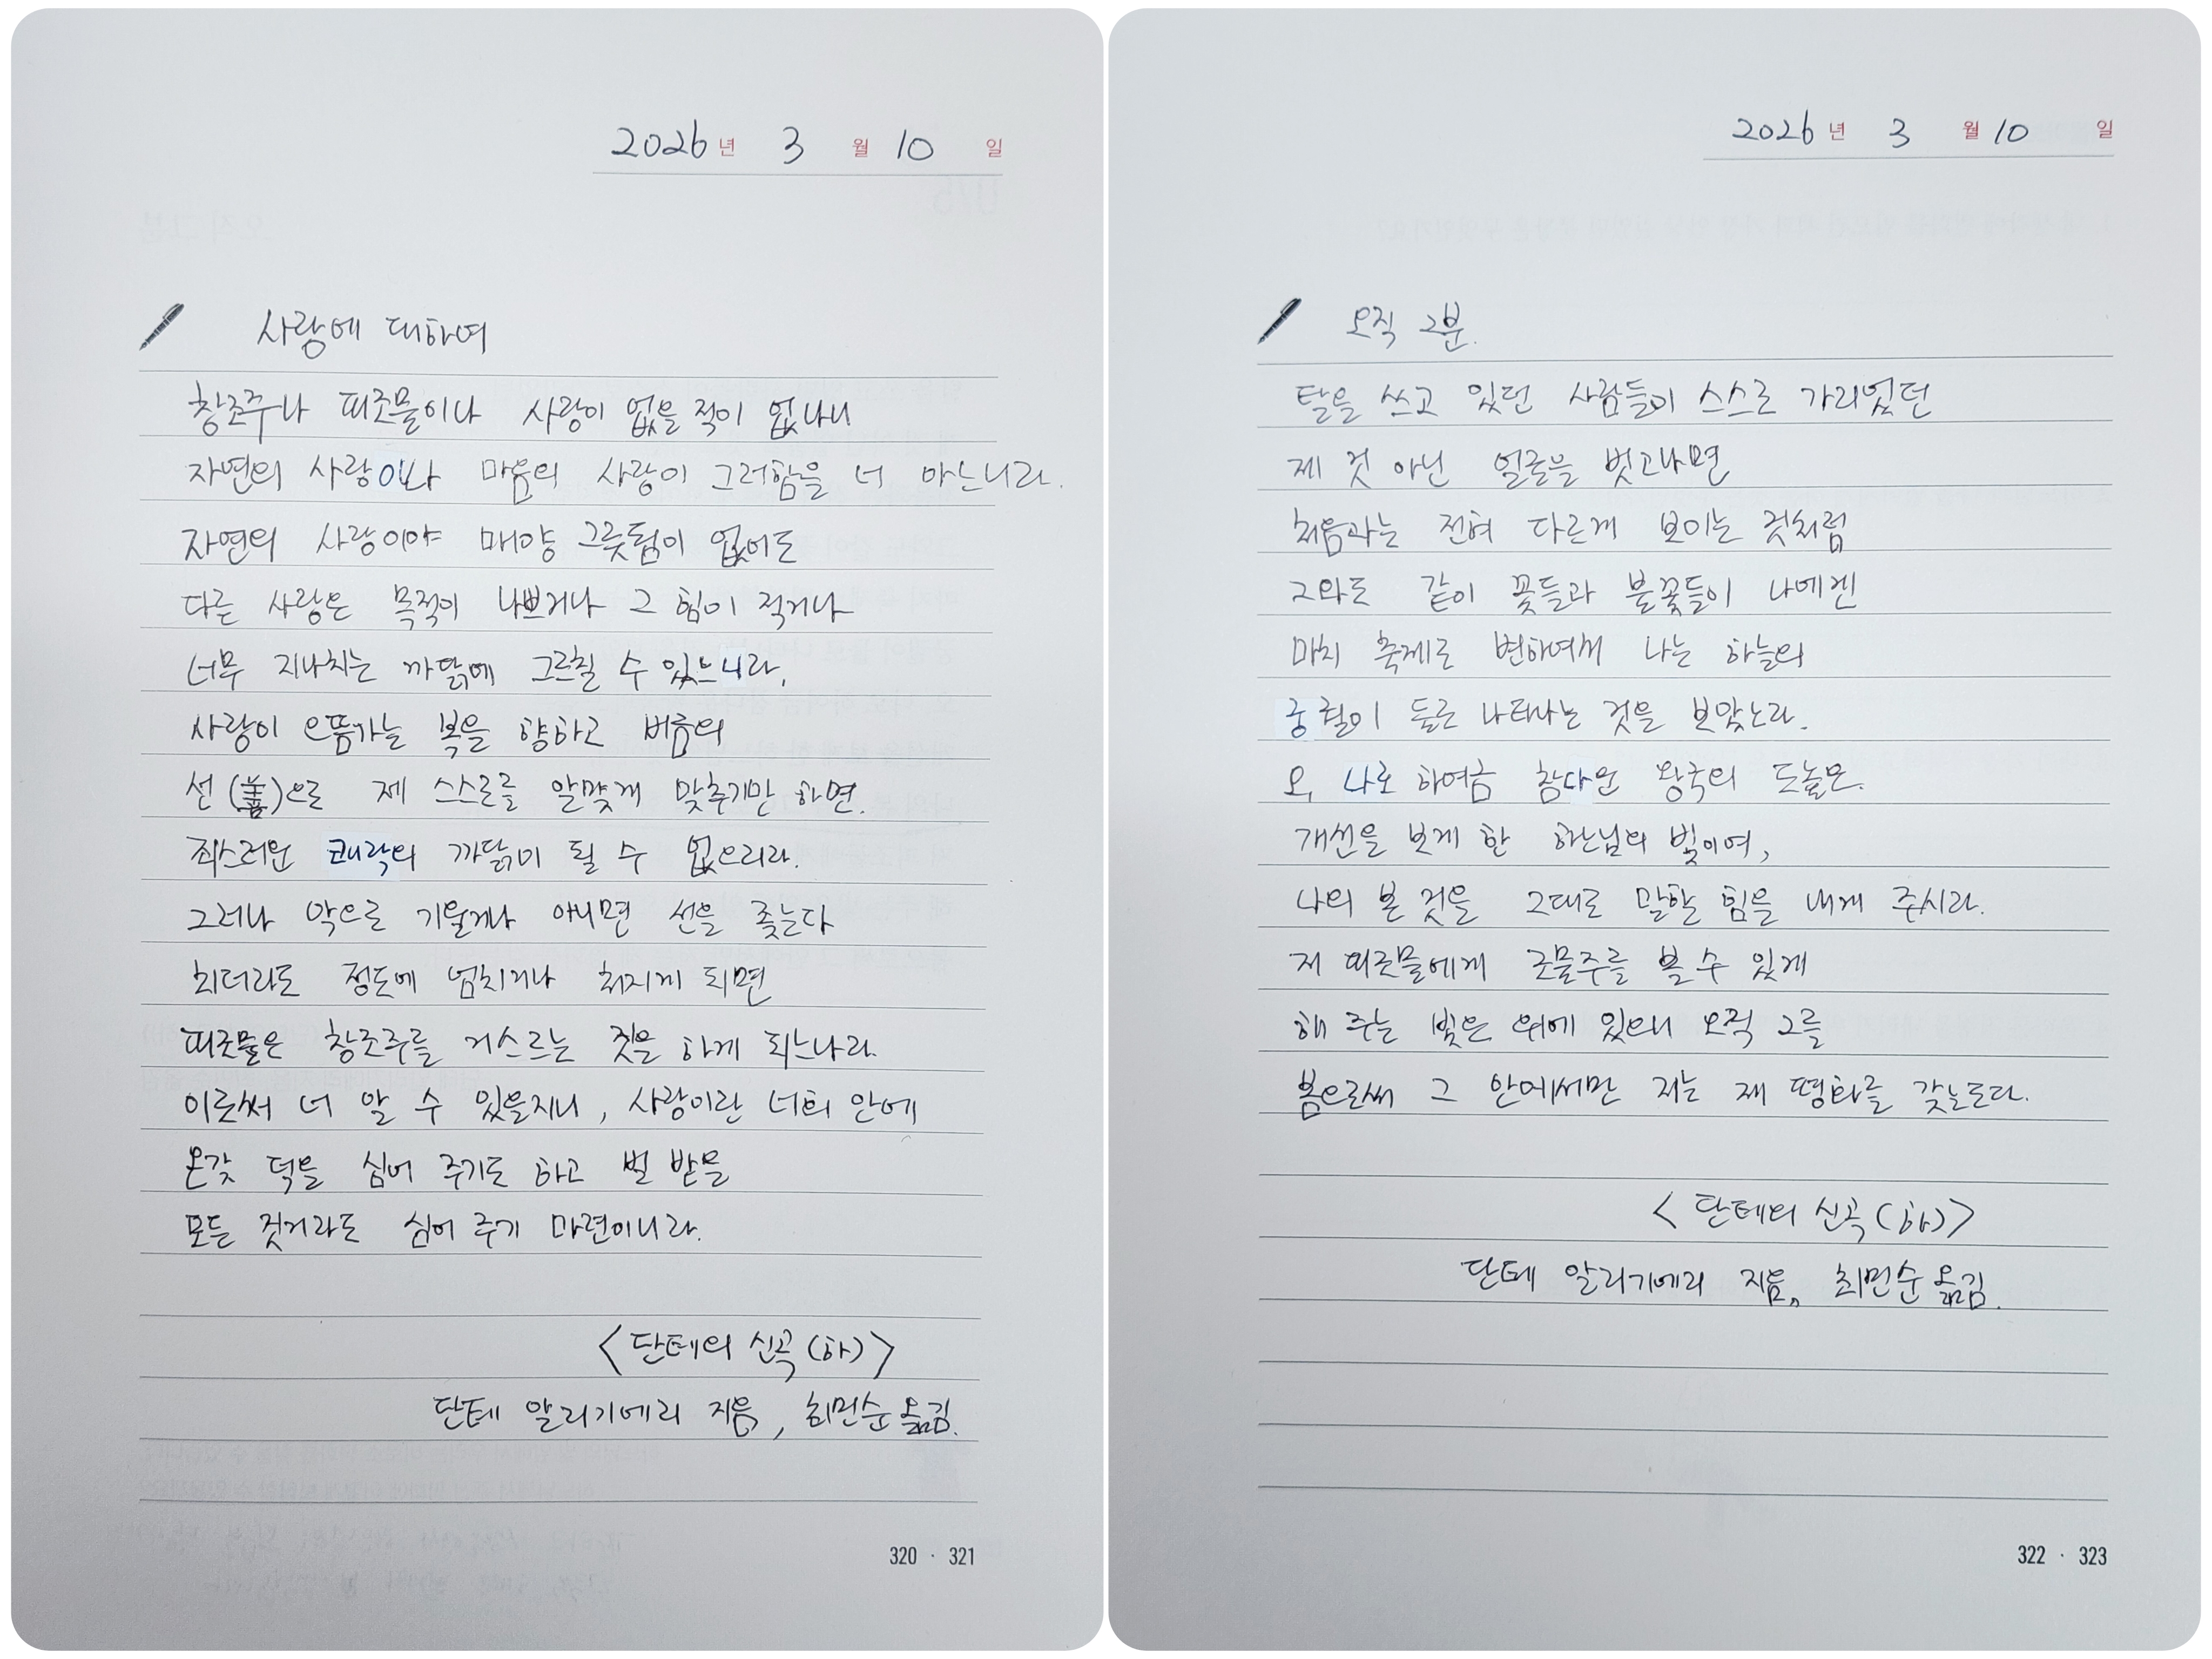 2026년 3월 10일
사랑에 대하여
창조주나 피조물이나 사랑이 없을 적이 없나니
자연의 사랑이나 마음의 사랑이 그러함을 너 아느니라.
자연의 사랑이야 매양 그릇됨이 없어도
다른 사랑은 목적이 나쁘거나 그 힘이 적거나
너무 지나치는 까닭에 그르칠 수 있느니라.
사랑이 으뜸가는 복을 향하고 버금의
선(善)으로 제 스스로를 알맞게 맞추기만 하면.
죄스러운 쾌락의 까닭이 될 수 없으리라.
그러나 악으로 기울거나 아니면 선을 좇는다
최더라도 정도에 넘치거나 처지게 되면
피조물은 창조주를 거스르는 짓을 하게 되느니라.
이로써 너 알 수 있을지니, 사랑이란 너희 안에
온갖 덕을 심어 주기도 하고 벌 받을
모든 짓거리도 심어 주기 마련이니라.
<단테의 신곡(하)>
단테 알리기에리 지음, 최민순 옮김.
320 · 321
2026년 3월 10일
오직 그분.
탈을 쓰고 있던 사람들이 스스로 가리었던
제 것 아닌 얼굴을 벗고나면
처음과는 전혀 다르게 보이는 것처럼
그와도 같이 꽃들과 불꽃들이 나에겐
마치 축제로 변하여서 나는 하늘의
궁궐이 둘로 나타나는 것을 보았노라.
오, 나로 하여금 참다운 왕국의 드높은.
개선을 보게 한 하느님의 빛이여,
나의 본 것을 그대로 말할 힘을 내게 주시라.
저 피조물에게 조물주를 볼 수 있게
해 주는 빛은 위에 있으니 오직 그를
봄으로써 그 안에서만 저는 제 평화를 갖는도다.
<단테의 신곡(하)>
단테 알리기에리 지음, 최민순 옮김.
322 · 323